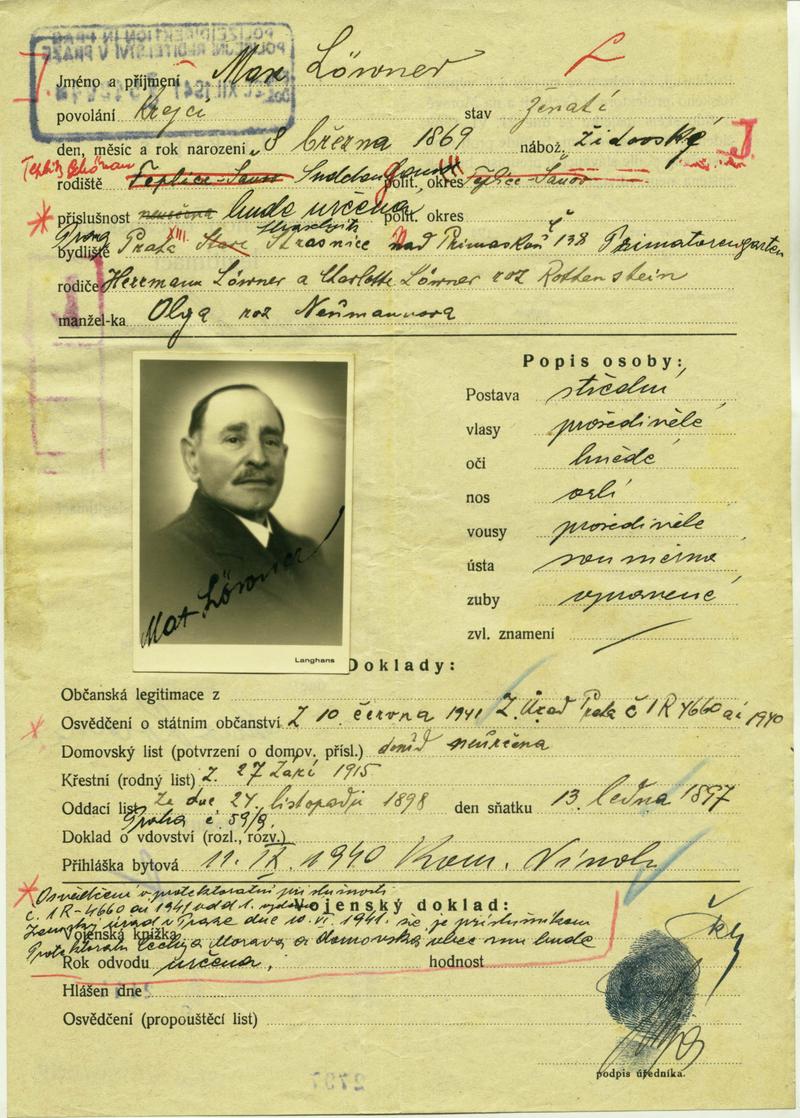 POLIZEIDIREKTION IN PRAG
POLICEJNÍ ŘEDITELSTVÍ V PRAZE
Jméno a příjmení Max Löwner
povolání Krejčí stav ženatí
den, měsíc a rok narození 8 března 1869 nábož. židovské J
rodiště Teplice-Šanov Sudetengau polit. okres Teplice-Šanov
příslušnost neurčena bude určena polit. okres
bydliště Praha XIII. Stare Strašnice nad Primaskou č 138 Primatorengarten
rodiče Herrmann Löwner a Charlotte Löwner roz Rottenstein
manžel-ka Olga roz Neumannova
Popis osoby:
Postava střední
vlasy prošedivělé
oči hnědé
nos orlí
vousy prošedivělé
ústa souměrná
zuby vpravené
zvl. znamení
Max Löwner
Langhans
Doklady:
Občanská legitimace z
Osvědčení o státním občanství Z 10. června 1941 Z. Úřad Praha č 1 R 4660 ai 1940
Domovský list (potvrzení o domov. přísl.) neurčena
Křestní (rodný list) Z. 27 Září 1915
Oddací list Ze dne 24. listopadu 1898 den sňatku 13. ledna 1897
Praha č. 59/9.
Doklad o vdovství (rozl., rozv.)
Přihláška bytová 11. IX. 1940 Kom. Vinoh
Osvědčení o protektorátní příslušnosti
č. 1 R-4660 ai 1941 odd 1. vydan
Vojenský doklad:
Zemský úřad v Praze dne 10. VI. 1941. že je příslušníkem
Vojenská knížka
Protektorátu Čechy a Morava a domovská obec mu bude
Rok odvodu určena. hodnost
Hlášen dne
Osvědčení (propouštěcí list)
podpis úředníka.
2797